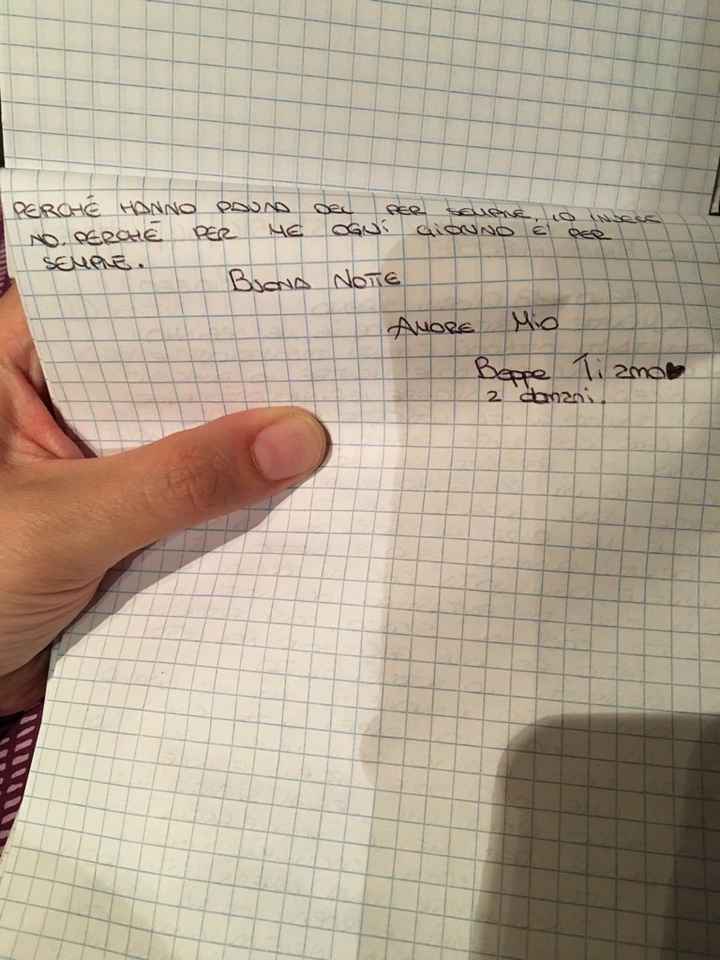 PERCHÉ HANNO PAURA DEL PER SEMPRE, IO INVECE
NO. PERCHÉ PER ME OGNI GIORNO E' PER
SEMPRE.
BUONA NOTTE
AMORE MIO
Beppe Ti amo
a domani.